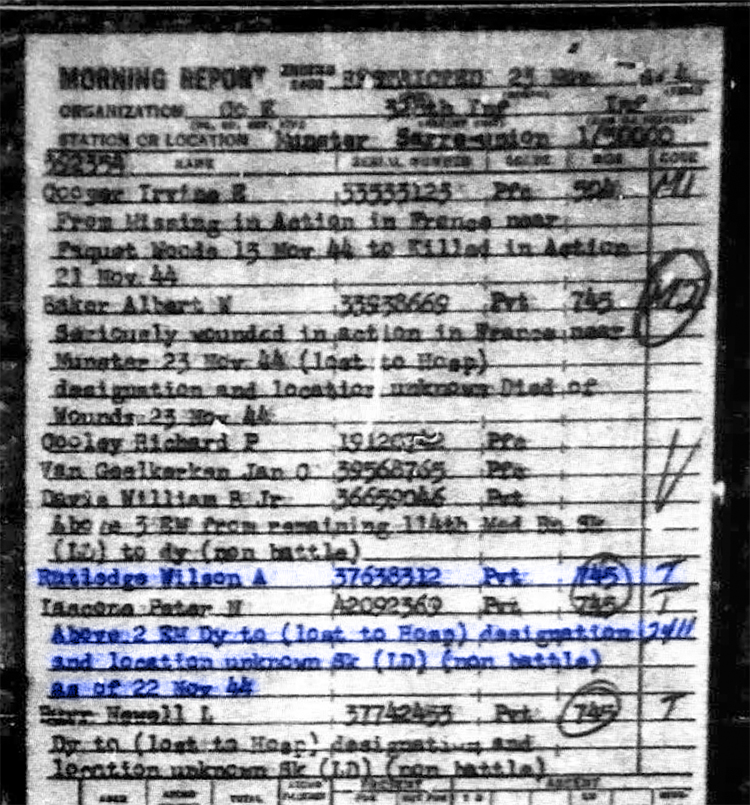 MORNING REPORT RESTRICTED 23 Nov
ORGANIZATION Co K Inf Inf
STATION OR LOCATION Munster Sarre-union 1/50000
NAME SERIAL NUMBER GRADE CODE
Irvine E 33533123 Pfc 504 M1
From Missing in Action in France near
Woods 13 Nov 44 to Killed in Action
21 Nov 44
Baker Albert W 33938669 Pvt 745 M2
Seriously wounded in action in France near
Munster 23 Nov 44 (lost to Hosp)
designation and location unknown Died of
Wounds 23 Nov 44
Cooley Richard P Pfc
Van Geelkerken Jan C 39568765 Pfc
Davis William B Jr 36659046 Pvt
Above 3 EM from remaining 114th Med Bn Sk
(LD) to dy (non battle)
Rutledge Wilson A 37638312 Pvt 745 T
Iascone Peter N 42092369 Pvt 745 T
Above 2 EM Dy to (lost to Hosp) designation
and location unknown Sk (LD) (non battle)
as of 22 Nov 44
Burr Newell L 37742453 Pvt 745 T
Dy to (lost to Hosp) designation and
location unknown Sk (LD) (non battle)
TOTAL